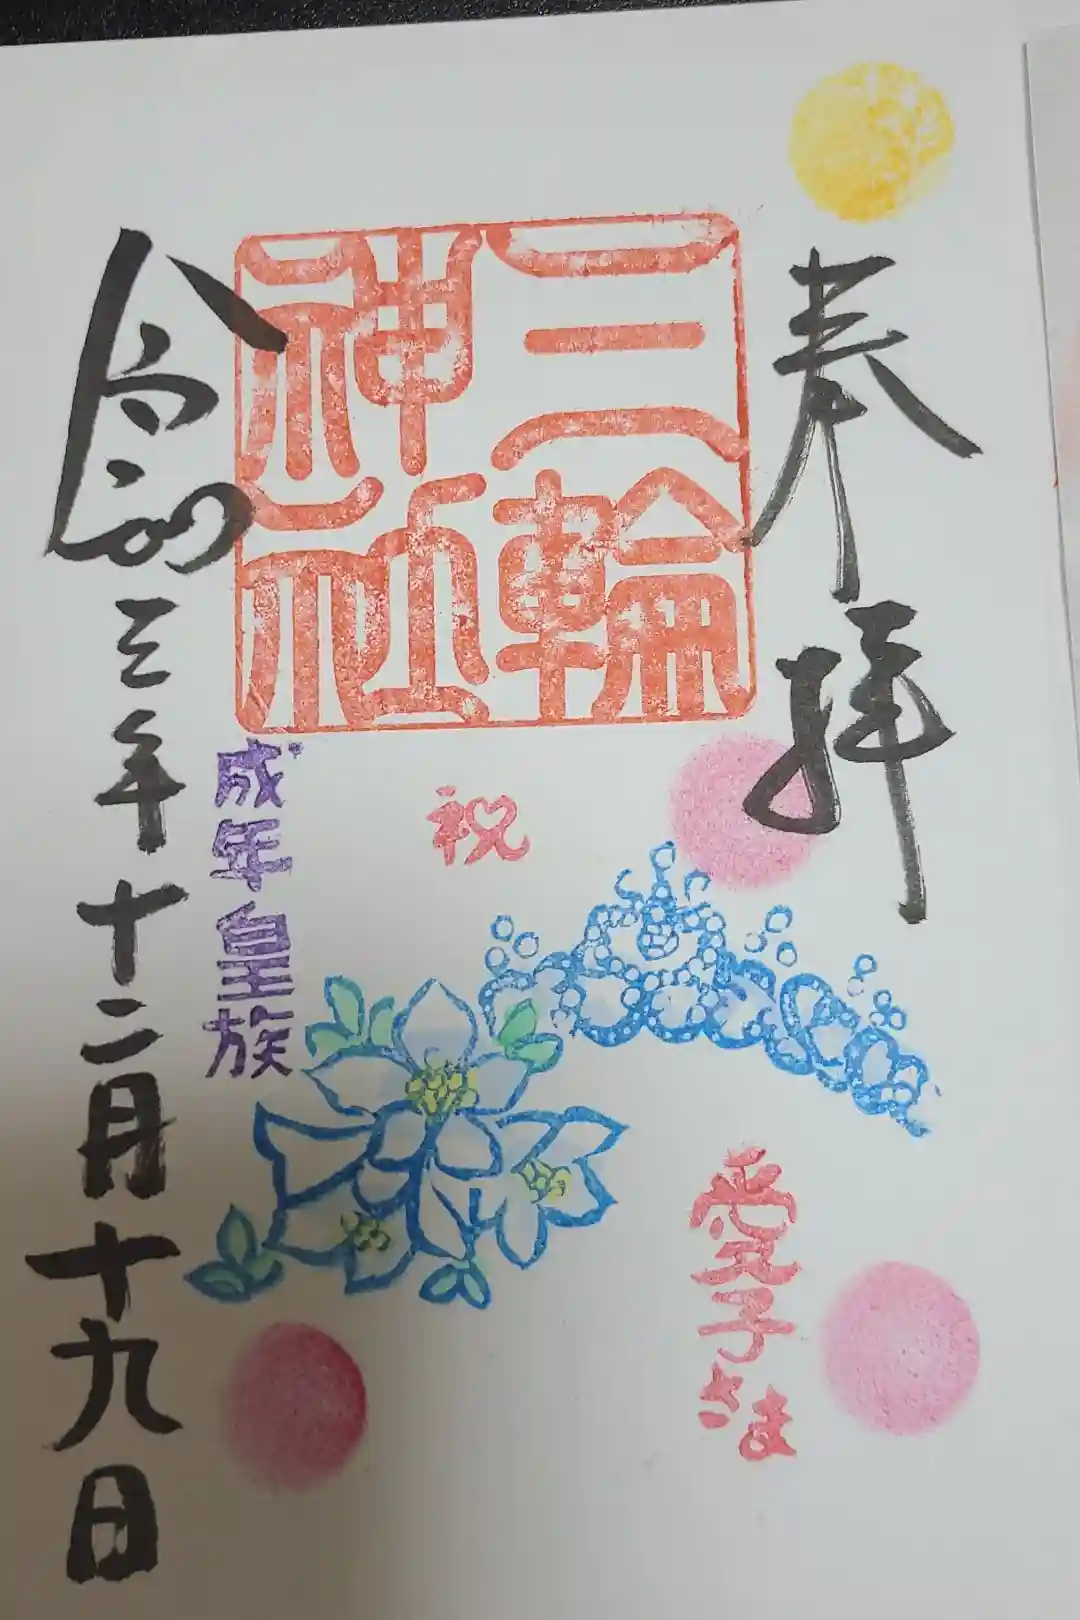 奉拝
三輪
神社
祝
愛子さま
成年皇族
令和三年十二月十九日